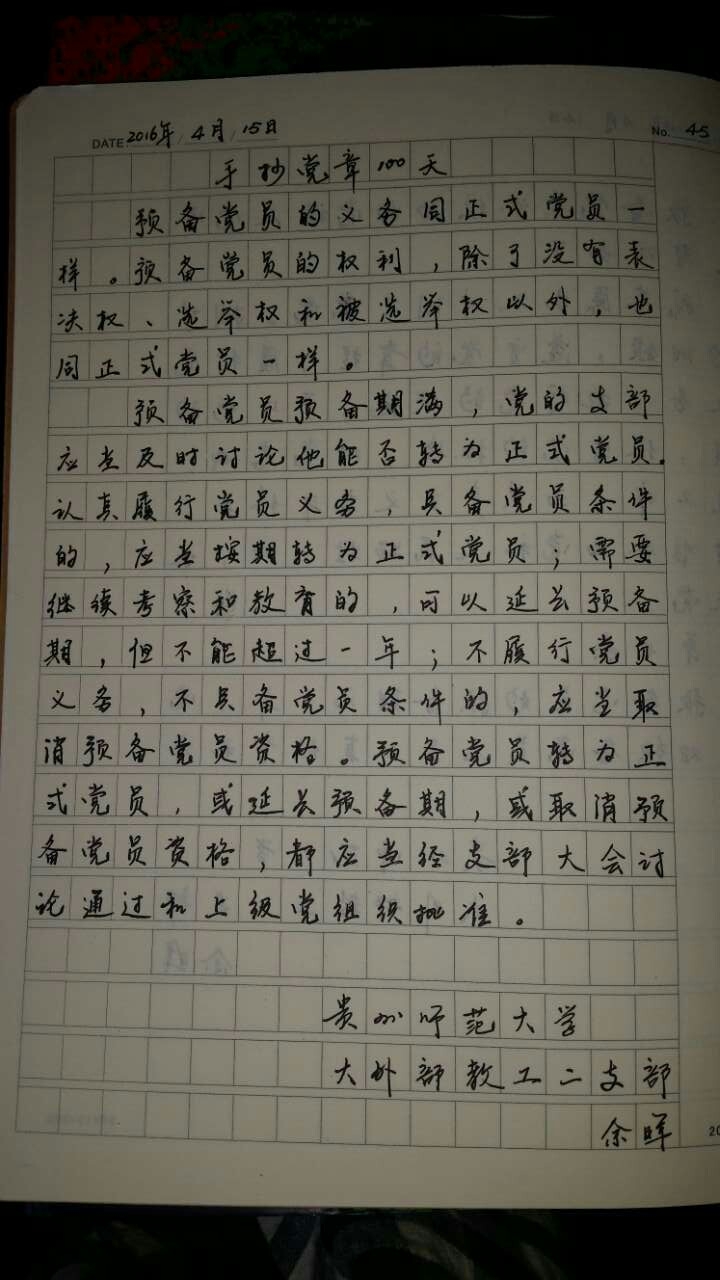 DATE 2016年 4月 15日 No. 45
手抄党章100天
预备党员的义务同正式党员一
样。预备党员的权利，除了没有表
决权、选举权和被选举权以外，也
同正式党员一样。
预备党员预备期满，党的支部
应当及时讨论他能否转为正式党员.
认真履行党员义务，具备党员条件
的，应当按期转为正式党员；需要
继续考察和教育的，可以延长预备
期，但不能超过一年；不履行党员
义务，不具备党员条件的，应当取
消预备党员资格。预备党员转为正
式党员，或延长预备期，或取消预
备党员资格，都应当经支部大会讨
论通过和上级党组织批准。
贵州师范大学
大外部教工二支部
余晖
20